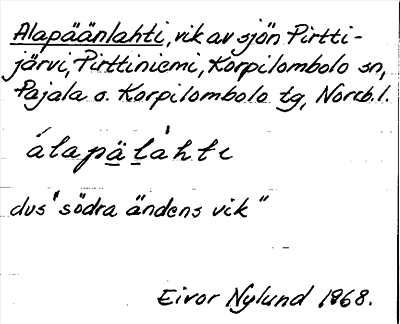 Alapäänlahti, vik av sjön Pirtti-
järvi, Pirttiniemi, Korpilombolo sn,
Pajala o. Korpilombolo tg, Norrb.l.
álapä̱ḻàhti
dvs "södra ändens vik"
Eivor Nylund 1968.